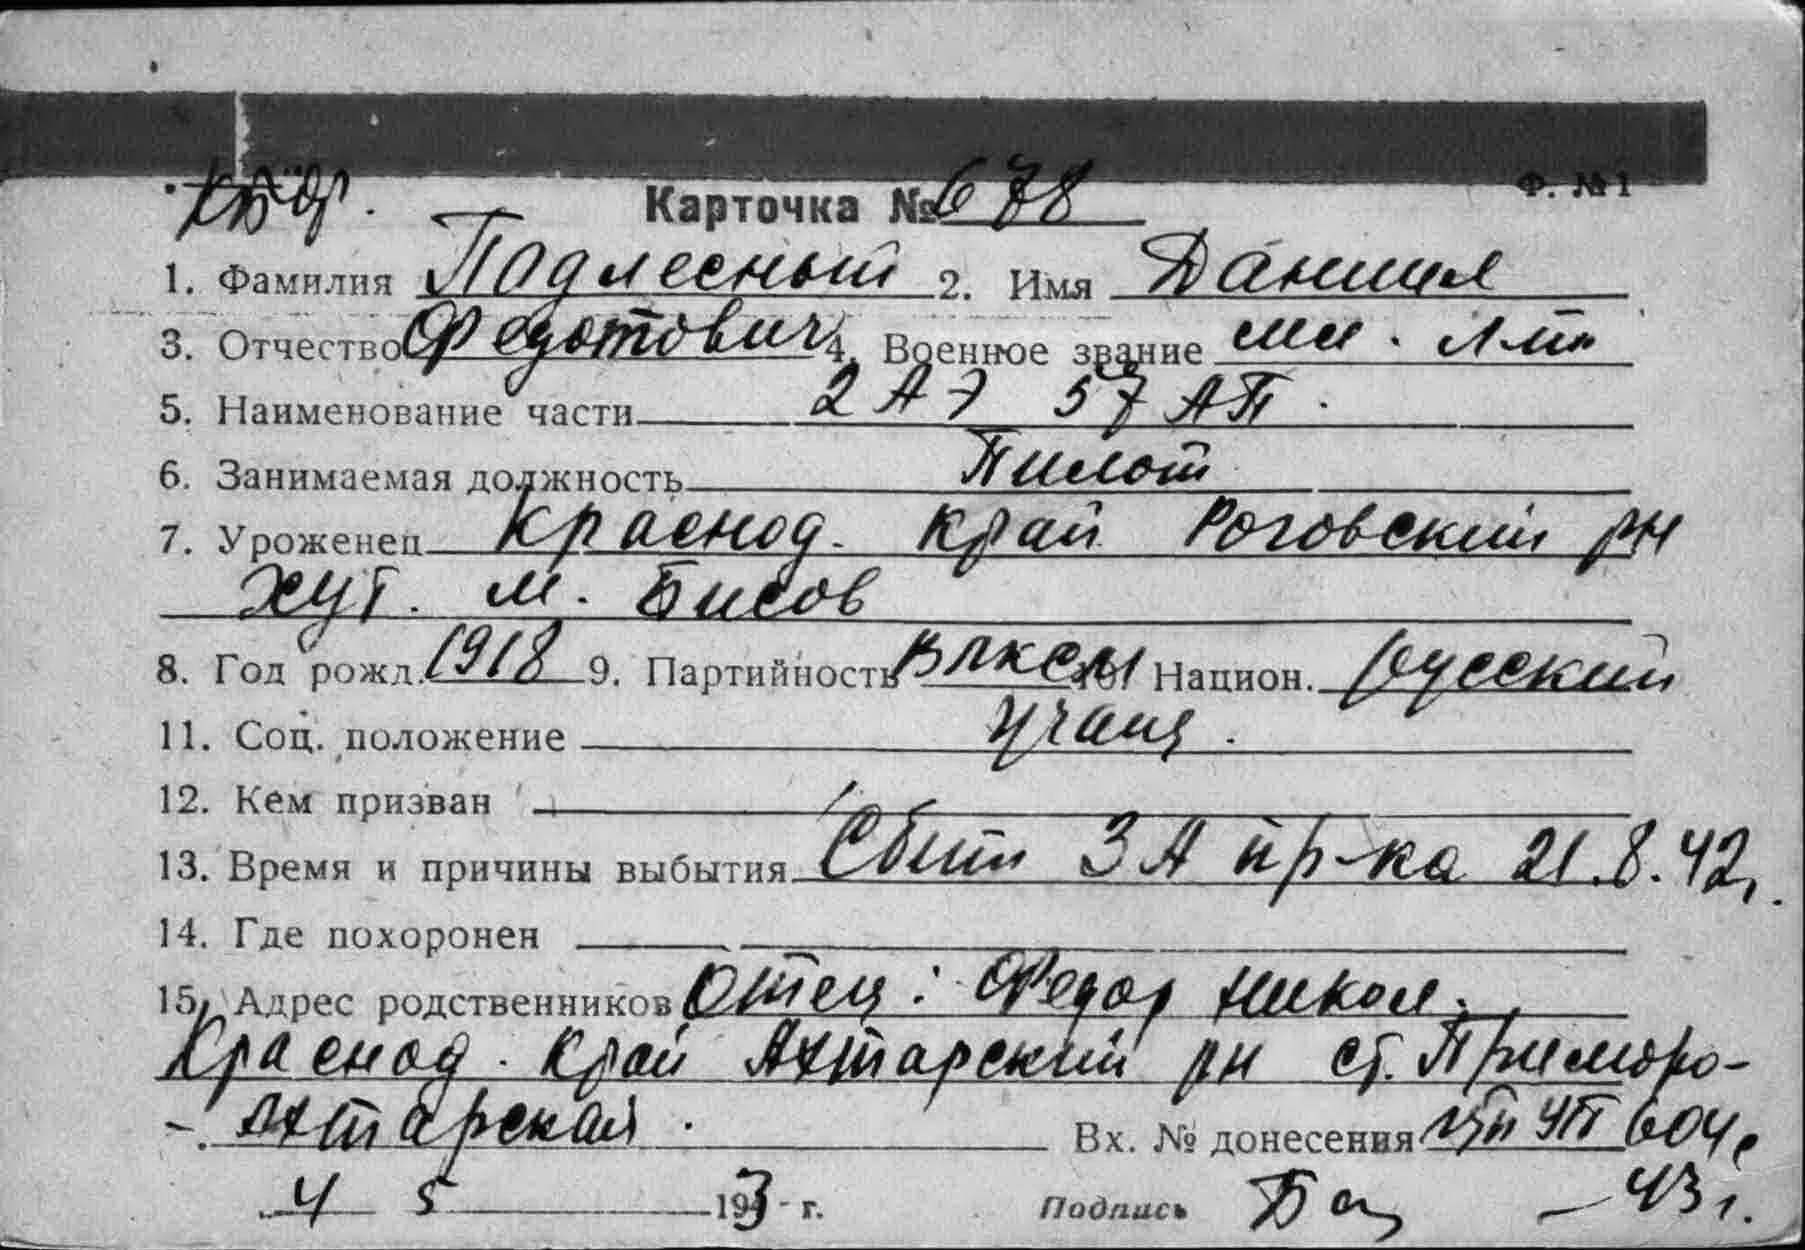 Ф. №1
Карточка № 678
1. Фамилия Подлесный 2. Имя Даниил
3. Отчество Федотович 4. Военное звание мл. л-т
5. Наименование части 2 АЭ 57 АП.
6. Занимаемая должность Пилот
7. Уроженец Краснод. край Роговский рн
хут. м. Бисов
8. Год рожд. 1918 9. Партийность ВЛКСМ 10. Национ. русский
11. Соц. положение учащ.
12. Кем призван
13. Время и причины выбытия Сбит ЗА пр-ка 21.8.42г.
14. Где похоронен
15. Адрес родственников Отец: Федор Никол.
Краснод. край Ахтарский рн ст. Приморо-
-Ахтарская. Вх. № донесения 604с
4 5 1943 г. Подпись -43г.